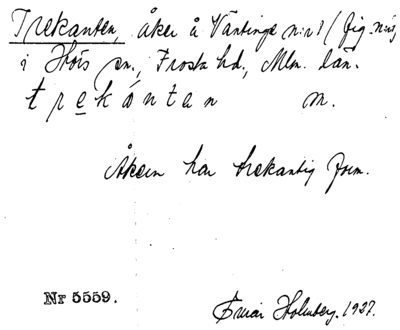 Trekanten, åker å Väntinge n:r 1 (fig. n:r
i Hörs sn., Frosta hd., Mlm. län.
trekántan m.
Åkern har trekantig form.
Nr 5559.
Einar Holmberg. 1927.